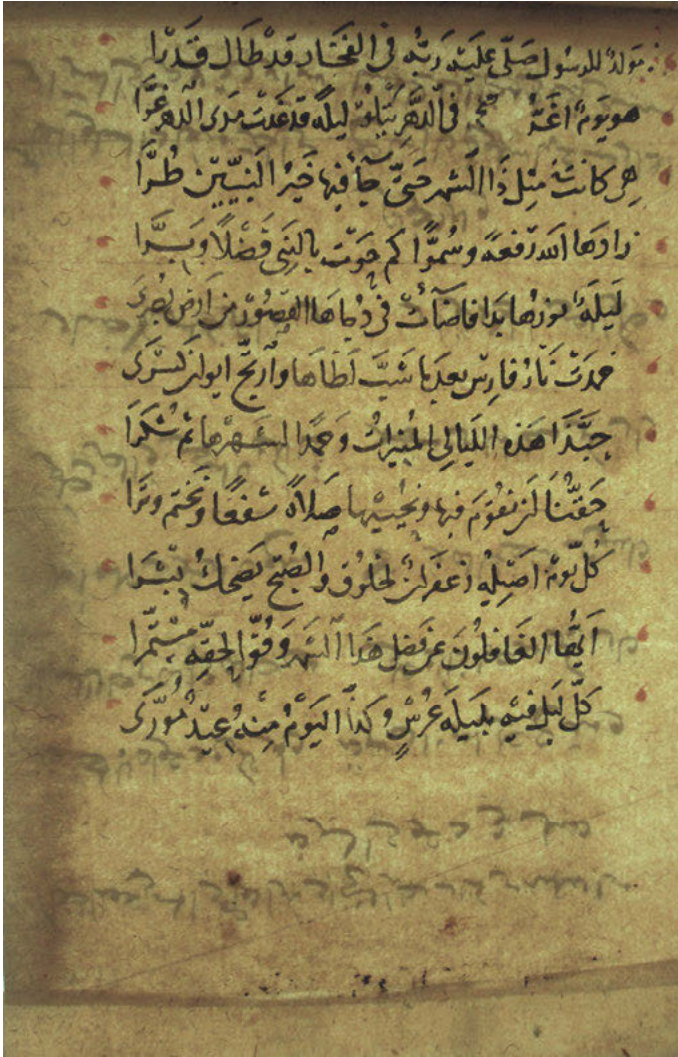 مولد للرسول صلى عليه ربه في الفخار قد طال قدرا
هو يوم اغر في الدهر يتلوه ليلة قد غدت مدى الدهر غرا
هي كانت مثل ذا الشهر حتى جآء فيها خير النبيين طرا
زادها الله رفعة وسموا كم حوت بالنبي فضلا وبرا
ليلة نورها بدا فاضآءت في دجاها القصور من ارض بصرى
خمدت نار فارس بعد ما شب لظاها وارتج ايوان كسرى
حبذا هذه الليالي المنيرات وحمدا لشهرها ثم شكرا
حقنا ان نقوم فيها ونحييها صلاة شفعا ونختم وترا
كل يوم اصيله زعفران لخلوق والصبح يضحك بشرا
ايها الغافلون عن فضل هذا الشهر وفوا لحقه مستمرا
كل ليل فيه بليلة عرس وكذا اليوم منه عيد